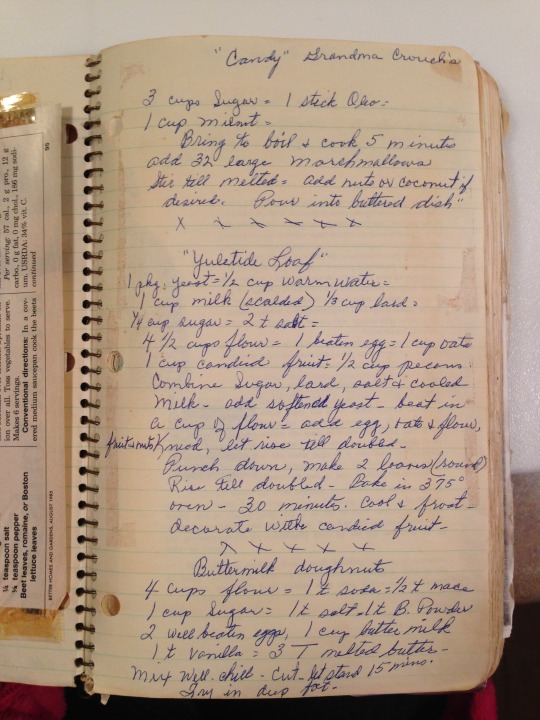 "Candy" Grandma Crouch's
3 cups Sugar = 1 stick Oleo =
1 cup milnot =
Bring to boil & cook 5 minutes
add 32 large marshmallows
Stir till melted = add nuts or coconut if
desired. Pour into buttered dish"
x x x x x x
"Yuletide Loaf"
1 pkg. yeast = 1/2 cup warm water =
1 cup milk (scalded) 1/3 cup lard =
1/4 cup sugar = 2 t salt =
4 1/2 cups flour = 1 beaten egg = 1 cup oats
1 cup candied fruit = 1/2 cup pecans.
Combine Sugar, lard, salt & cooled
milk - add softened yeast - beat in
a cup of flour = add egg, oats & flour,
fruit & nuts
knead, let rise tell doubled -
Punch down, make 2 loaves (round)
Rise tell doubled - Bake in 375°
oven - 30 minutes. Cool & frost -
decorate with candied fruit -
x x x x x
Buttermilk doughnuts
4 cups flour = 1 t soda = 1/2 t mace
1 cup Sugar = 1 t salt - 1 t B. Powder
2 well beaten eggs, 1 cup butter milk
1 t vanilla = 3 T melted butter -
Mix well. chill - cut - let stand 15 mins.
Fry in deep fat -
Per serving: 57 cal., 2 g pro., 12 g
carbo., 0 g fat, 0 mg chol., 186 mg sodi-
um. USRDA: 34% vit. C.
continued
95
ion over all. Toss vegetables to serve.
Makes 6 servings.
Conventional directions: In a cov-
ered medium saucepan cook the beets
1/4 teaspoon salt
1/8 teaspoon pepper
Beet leaves, romaine, or Boston
lettuce leaves
BETTER HOMES AND GARDENS, AUGUST 1983